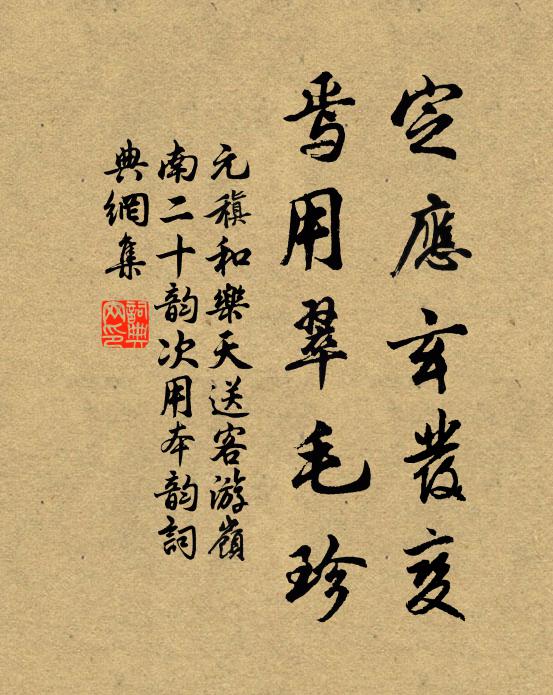 定應玄發變
焉用翠毛珍
元稹和樂天送客游嶺
南二十韵次用本韵詞
典網集
詞典網印